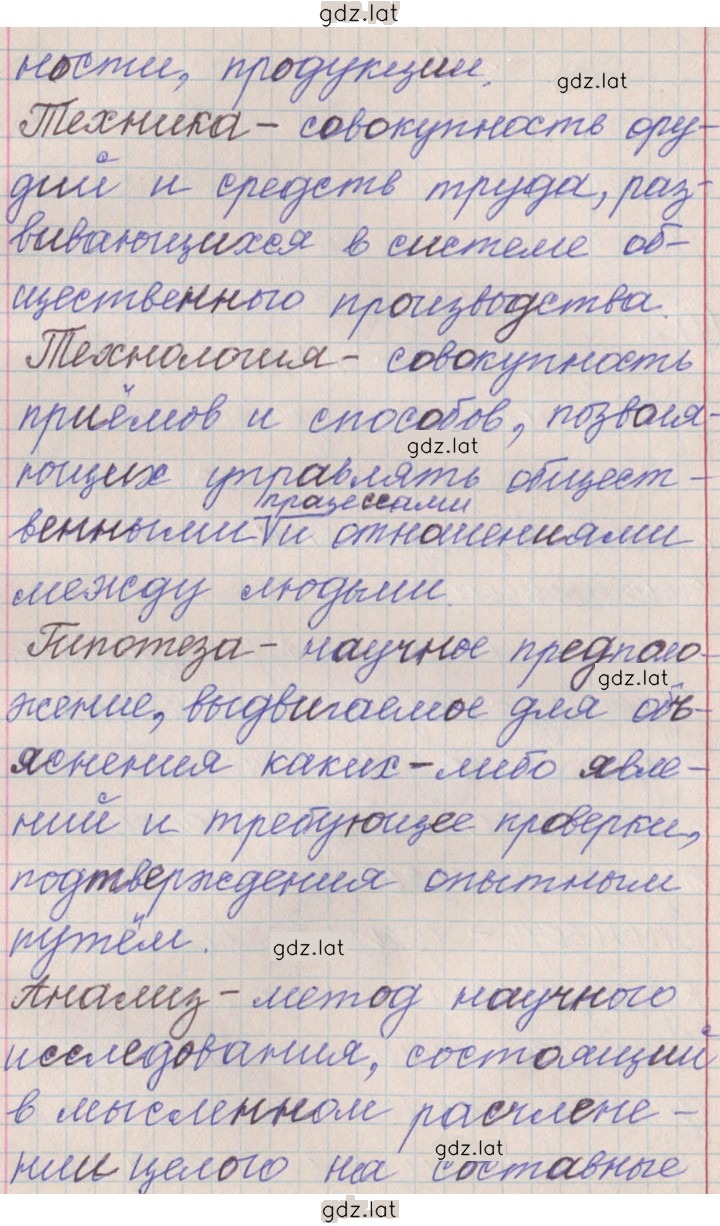 gdz.lat
ности, продукции.
gdz.lat
Техника – совокупность ору-
дий и средств труда, раз-
вивающихся в системе об-
щественного производства.
Технология – совокупность
приёмов и способов, позволя-
gdz.lat
ющих управлять общест-
процессами
венными V и отношениями
между людьми.
Гипотеза – научное предполо-
gdz.lat
жение, выдвигаемое для объ-
яснения каких-либо явле-
ний и требующее проверки,
подтверждения опытным
путём.
gdz.lat
Анализ – метод научного
исследования, состоящий
в мысленном расчлене-
gdz.lat
нии целого на составные
gdz.lat